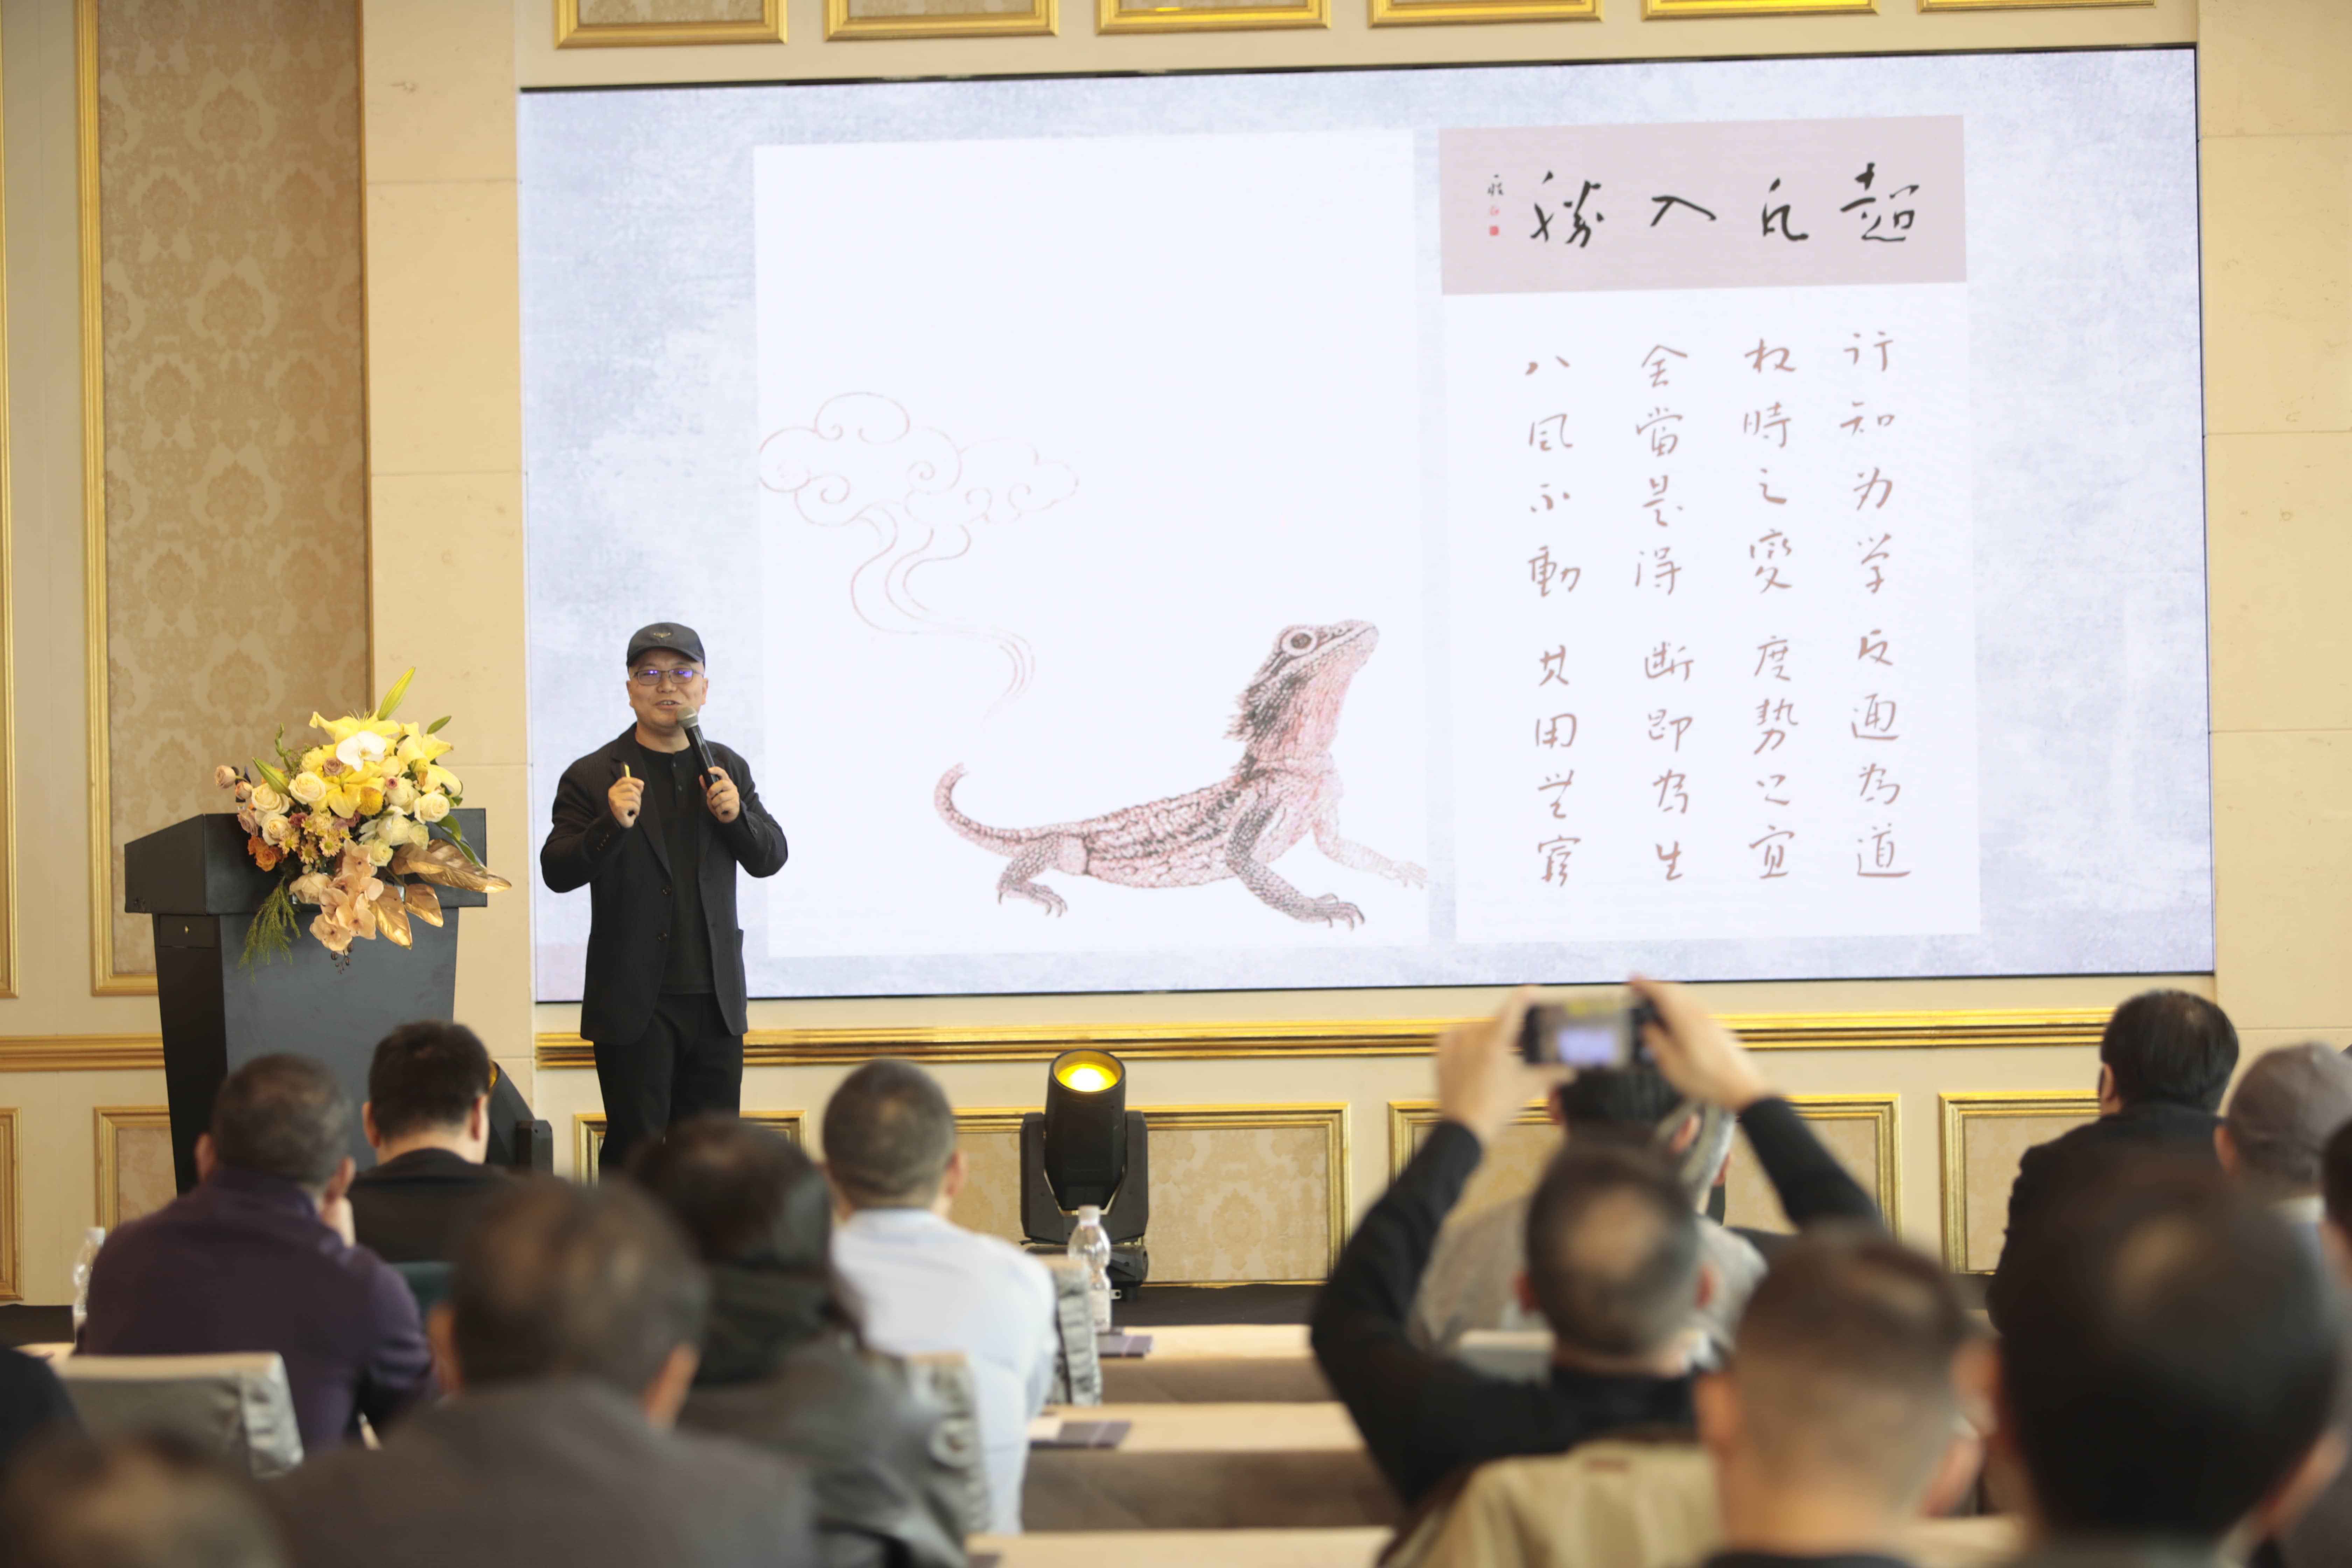 超凡入勝
行知为学 反通為道
权時之變 度勢之宜
舍當是得 断即為生
八風不動 其用無窮